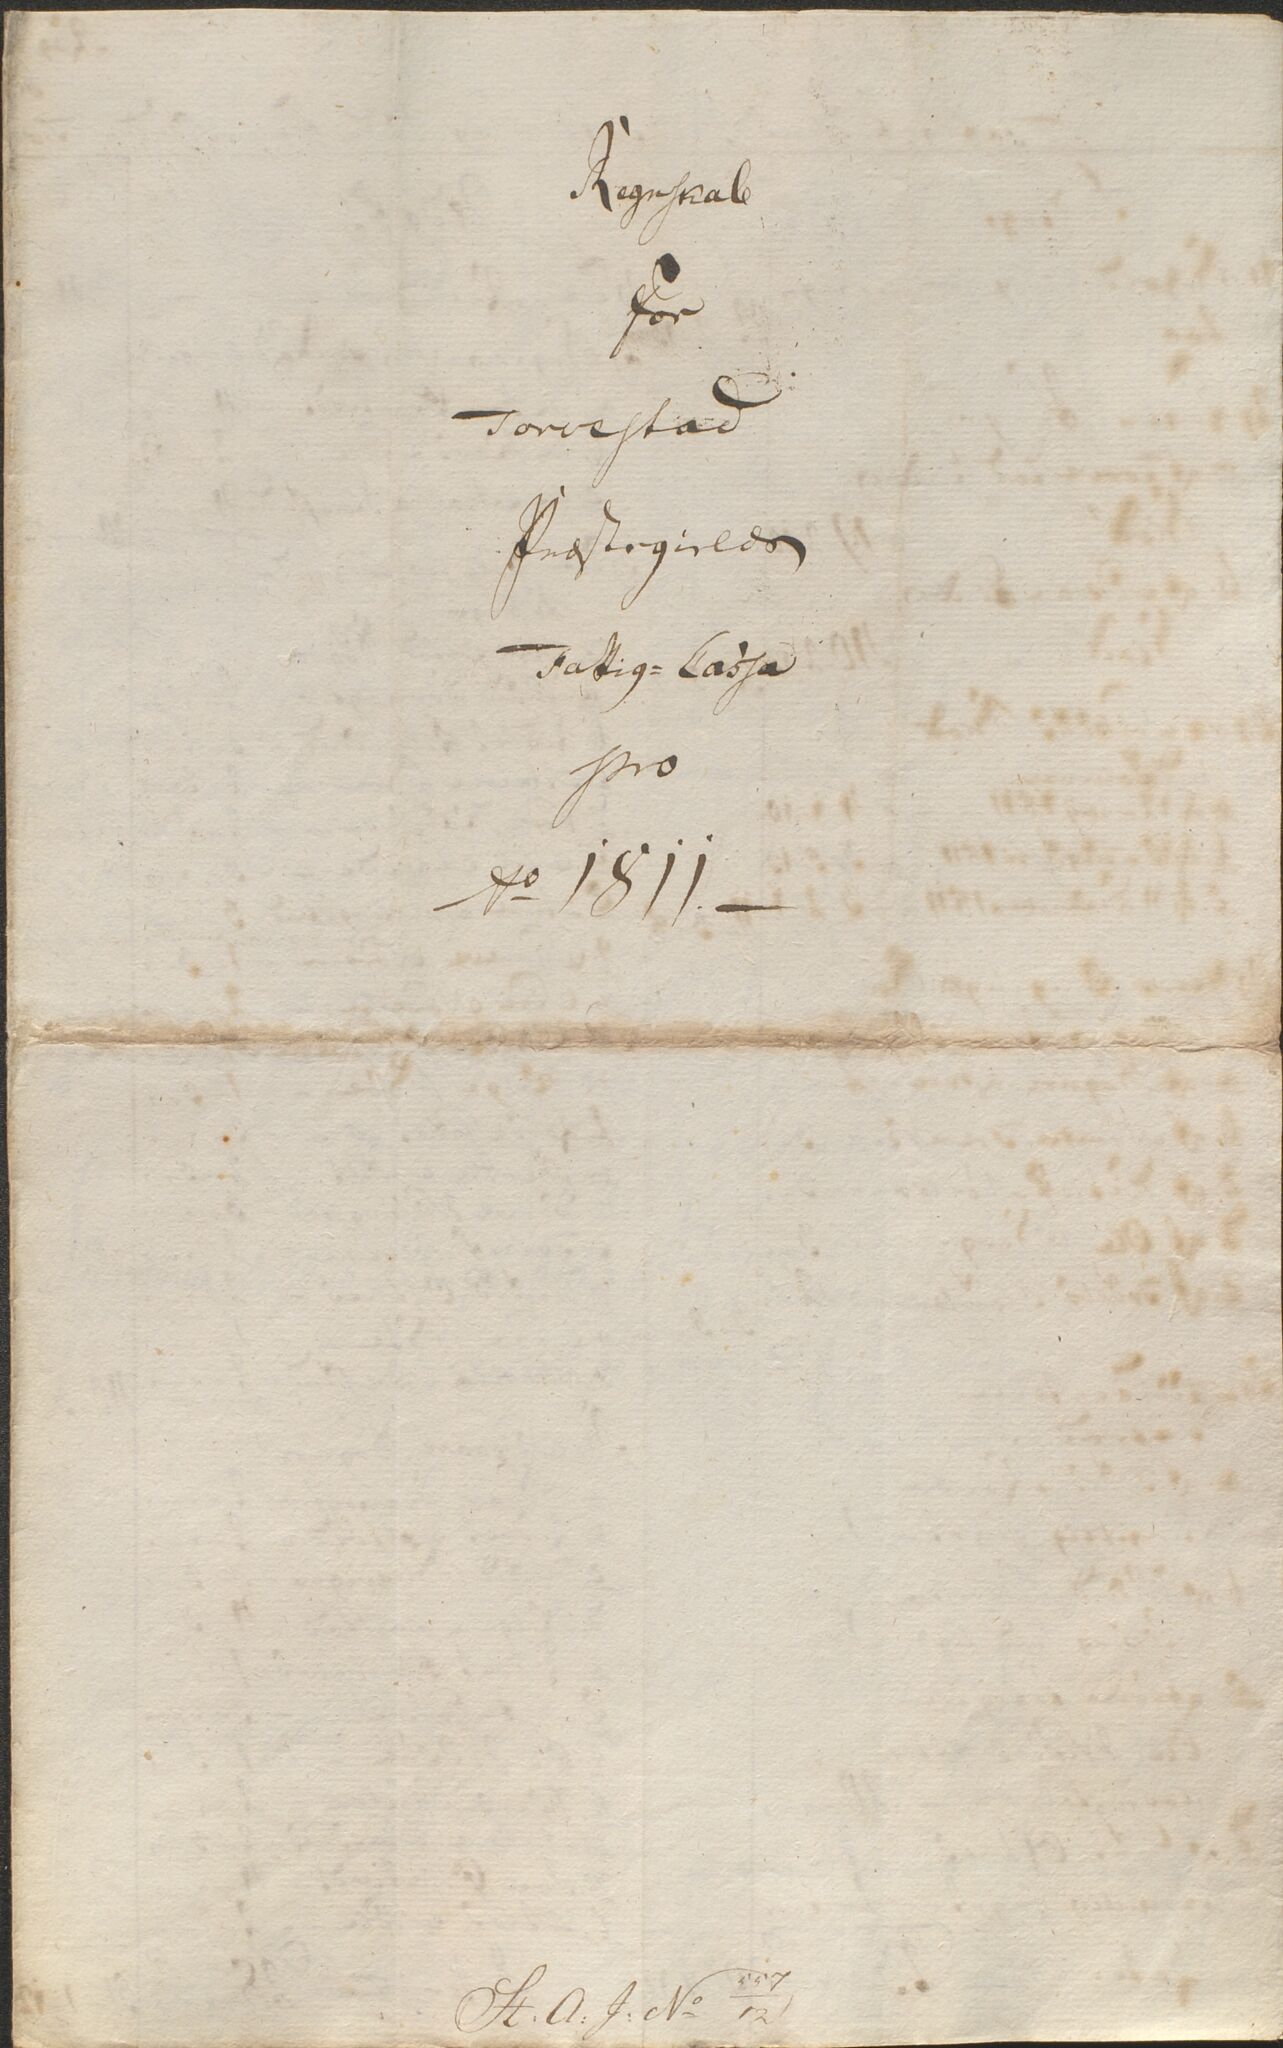 Regnskab
for
Torvestad
Præstegields
Fattig= Cassa
pro
Ao 1811. —
St. A. J. No 557/12